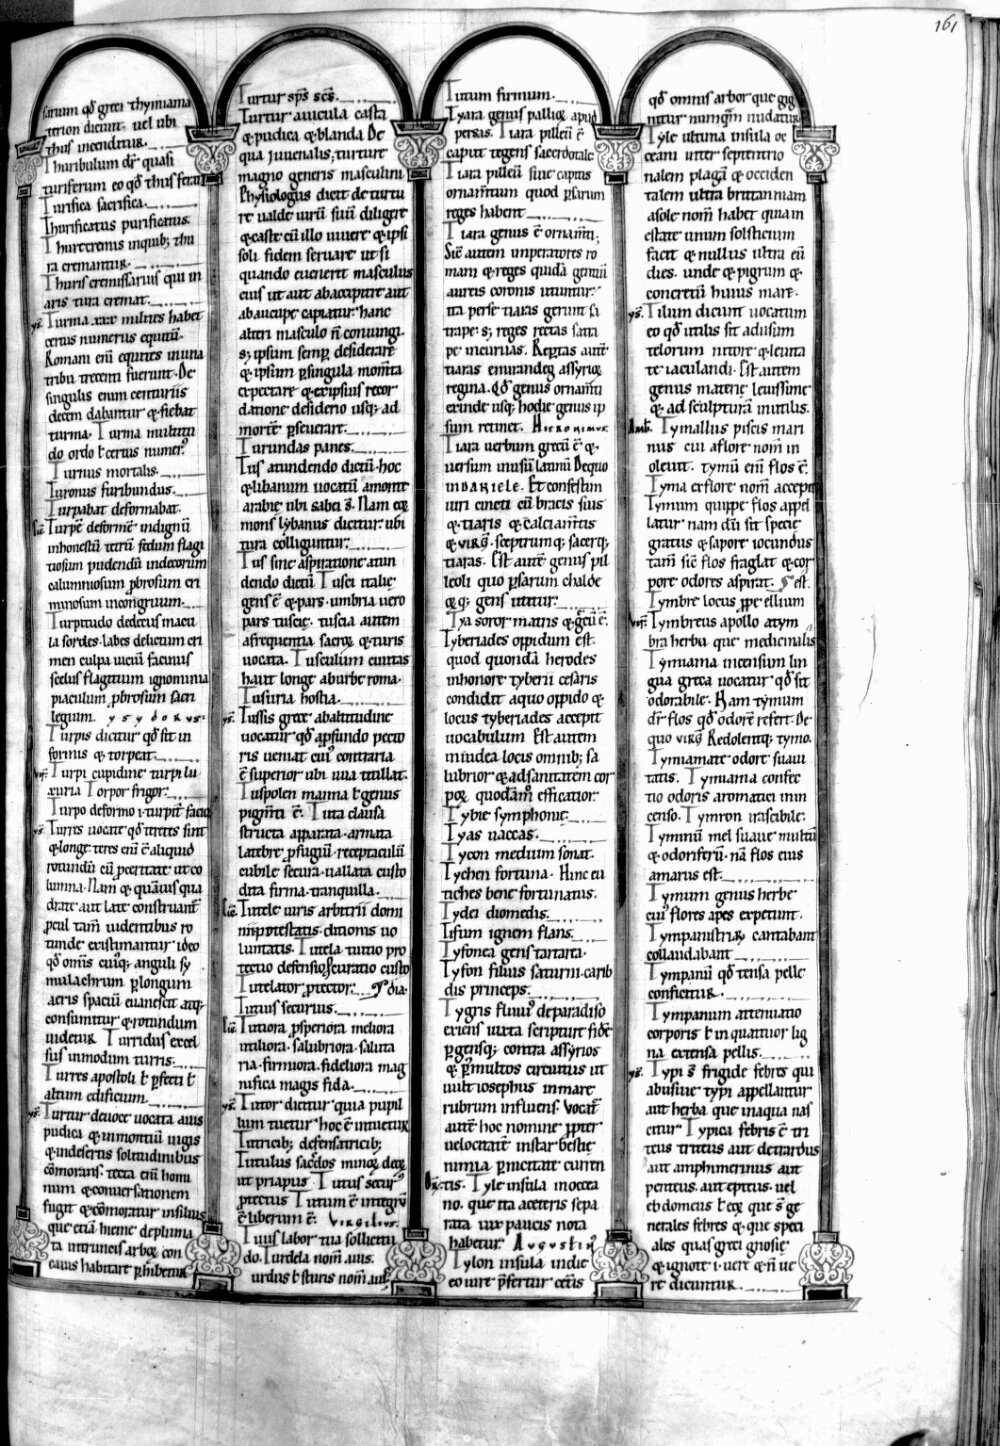 161
sarium qđ greci thymiama
terion dicunt. uel ubi
thus incenditur.
Thuribulum dr̄ quasi
turiferum eo qđ thus ferat
Turifica sacrifica.
Thurificatus purificatus.
Thurecremis inquib; thu
ra cremantur.
Thuris cremissarius qui in
aris tura cremat.
ys̄. Turma .xxx. milites habet
certus numerus equitū.
Romani enī equites in una
tribu treceni fuerunt. De
singulis enim centuriis
decem dabantur & fiebat
turma. Turma multitu
do ordo ł certus numerꝰ.
Turnus mortalis.
Turonus furibundus.
Turpabat deformabat.
Turpe deforme indignū
inhonestū tetrū fedum flagi
tiosum pudendū indecorum
calumniosum ꝓbrosum cri
minosum incongruum.
Turpitudo dedecus macu
la sordes. labes delictum cri
men culpa uiciū facinus
scelus flagitium ignominia
piaculum ꝓbrosum sacri
legium. ysydorus.
Turpis dicitur qđ sit in
formis & torpeat.
Turpi cupidine turpi lu
xuria Torpor frigor.
Turpo deformo .i. turpitē facio
ys̄. Turres uocate qđ teretes sint
& longe. teres enī ē aliquid
rotundū cū proceritate ut co
lumna. Nam & quāuis qua
drate aut late construant̄
procul tam̄ uidentibus ro
tunde existimantur ideo
qđ om̄is cuiꝰq; anguli sy
mulachrum per longum
aeris spaciū euanescit atq;
consumitur & rotundum
uidetur. Turridus excel
sus inmodum turris.
Turres apostoli ł ꝑfecti ł
altum edificium.
ys̄. Turtur deuoce uocata auis
pudica & in montiū iugis
& indesertis solitudinibus
cōmorans. tecta enī homi
num & conuersationem
fugit & cōmoratur insiluis
que etiā hieme depluma
ta intruncis arboꝝ con
cauis habitare ꝑhibetur
Turtur sp̄s sc̄s.
Turtur auicula casta
& pudica & blanda De
qua iuuenalis; turture
magno generis masculini
Physiologus dicit de turtu
re ualde uirū suū diligere
& caste cū illo uiuere & ipsi
soli fidem seruare ut si
quando euenerit masculus
eius ut aut abaccipitre aut
abaucupe capiatur. hanc
alteri masculo n̄ coniungi.
s; ipsum semper desiderare
& ipsum ꝑsingula mom̄ta
expectare & eripsius recor
datione desiderio usq; ad
mortē ꝑseuerare.
Turundas panes.
Tus atundendo dictū. hoc
& libanum uocatū amonte
arabie ubi sabei s̄. Nam eoꝝ
mons lybanus dicitur. ubi
tura colliguntur.
Tus sine aspiratione atun
dendo dictū Tusci italie
gens ē & pars. umbria uero
pars tuscie. tuscia autem
afrequentia sacroꝝ & turis
uocata. Tusculum ciuitas
haut longe aburbe roma.
Tusuria hostia.
ys̄. Tussis grece abaltitudine
uocatur qđ aꝓfundo pecto
ris ueniat cuiꝰ contraria
ē superior ubi uua titillat.
Tuspolen manna ł genus
pigm̄ti ē. Tuta clausa
structa apparata. armata
latebre ꝓfugiū. receptaculū
cubile secura. uallata custo
dita firma. tranquilla.
Tutele iuris arbitrii domi
nii potestatis. ditionis uo
luntatis. Tutela. tuitio pro
tectio defensio ł curatio custo
Tutelator protector. dia.
Tutius securius.
Tutiora ꝓsperiora meliora
utiliora. salubriora. saluta
ria. firmiora. fideliora mag
nifica magis fida.
ys̄. Tutor dicitur quia pupil
lum tuetur hoc ē intuetur
Tutricib; defensatricib;
Tutulus sac̄dos minoꝝ deoꝝ
ut priapus. Tutus securꝰ
protectus Tutum ē integrū
ē liberum ē. Virgilius.
Tuus labor tua sollicitu
do. Turdela nom̄ auis.
Turdus ł sturis nom̄ auis
Tutum firmum.
Tyara genus pallioꝝ apud
persas. Tiara pilleū ē
caput tegens sacerdotale
Tiara pilleū siue caputis
ornam̄tum quod ꝑsarum
reges habent
Tiara genus ē ornam̄ti.
Sic̄ autem imperatores ro
mani & reges quidā gentiū
aureis coronis utuntur.
ita perse tiaras gerunt sa
trape. s; reges rectas satra
pe incuruas. Reꝑtas autē
tiaras emirandeg assyrioꝝ
regina. Qđ genus ornam̄ti
exinde usq; hodie genus ip
sum retinet. Hieronimus.
Tiara uerbum grecū ē &
uersum inusū latinū De quo
in daniele. Et confestim
uiri cincti cū bracis suis
& tiaris & calciam̄tis
& virg̃. sceptrumq; sacerq;
tiaras. Est autē genus pil
leoli quo ꝑsarum chalde
oꝝq; gens utitur.
Tya soror matris & grecū ē.
Tyberiades oppidum est.
quod quondā herodes
inhonore tyberii cesaris
condidit aquo oppido &
locus tyberiades accepit
uocabulum Est autem
iniudea locus omnib; sa
lubrior & ad sanitatem cor
poꝝ quodam̄ efficatior.
Tybie symphonie.
Tyas uaccas.
Tycon medium sonat.
Tychen fortuna. Hinc eu
tiches bene fortunatus.
Tydei diomedis.
Tifum ignem flans.
Tyfonea gens tartarea.
Tyfon filius saturni. carib
dis princeps.
Tygris fluuiꝰ deparadiso
exiens iuxta scripture fidē
ꝑgensq; contra assyrios
& ꝑ multos circuitus ut
uult iosephus in mare
rubrum influens. Vocat̄
autē hoc nomine propter
uelocitatē instar bestie
nimia ꝑnicitate curren
tis. Tyle insula inocea
no. que ita aceteris sepa
rata uix paucis nota
habetur. Augustinꝰ
Tylon insula indie
eo iure ꝓfertur cet̄is
qđ omnis arbor que gig
nitur numq̄m nudatur.
Tyle ultima insula oc
ceani inter septentrio
nalem plagā & occiden
talem ultra britanniam
asole nom̄ habet quia in
estate unum solsticium
facit & nullus ultra eū
dies. unde & pigrum &
concretū huius mare.
ys̄. Tilium dicunt uocatum
eo qđ utilis sit adusum
telorum nitore & leuita
te iaculandi. Est autem
genus materie leuissime
&. ad sculpturā inutilis.
Amb̄. Tymallus piscis mari
nus cui aflore nom̄ in
oleuit. tymū enī flos ē.
Tyma exflore nom̄ accepit
Tymum quippe flos appel
latur nam dū sit specie
gratus & sapore iocundus
tam̄ sic̄ flos fraglat & cor
pore odores aspirat. est.
Tymbre locus prope ellium
Tymbreus apollo atym
bra herba que medicinalis
Tymiama incensum lin
gua greca uocatur qđ sit
odorabile. Nam tymum
dr̄ flos qđ odorē refert. De
quo virg̃ Redolentq; tymo.
Tymiamate odore suaui
tatis. Tymiama confec
tio odoris aromatici in in
censo. Tymron irascibile.
Tyminū mel suaue multū
& odoriferū. nā flos eius
amarus est.
Tymum genus herbe
cuiꝰ flores apes expetunt.
Tympanistriaꝝ cantabant
collaudabant
Tympanū qđ tensa pelle
conficitur.
Tympanum attenuatio
corporis ł in quatuor lig
na extensa pellis.
ys̄. Typi s̄ frigide febres qui
abusiue typi appellantur
aut herba que inaqua nas
citur Typica febris ē tri
teus triteus aut detiardus
aut amphimerinus aut
penteus. aut epitus. uel
ebdomeus ł eoꝝ que s̄ ge
nerales febres & que speci
ales quas greci gnosie
& ignote .i. uere & n̄ ue
re dicuntur.